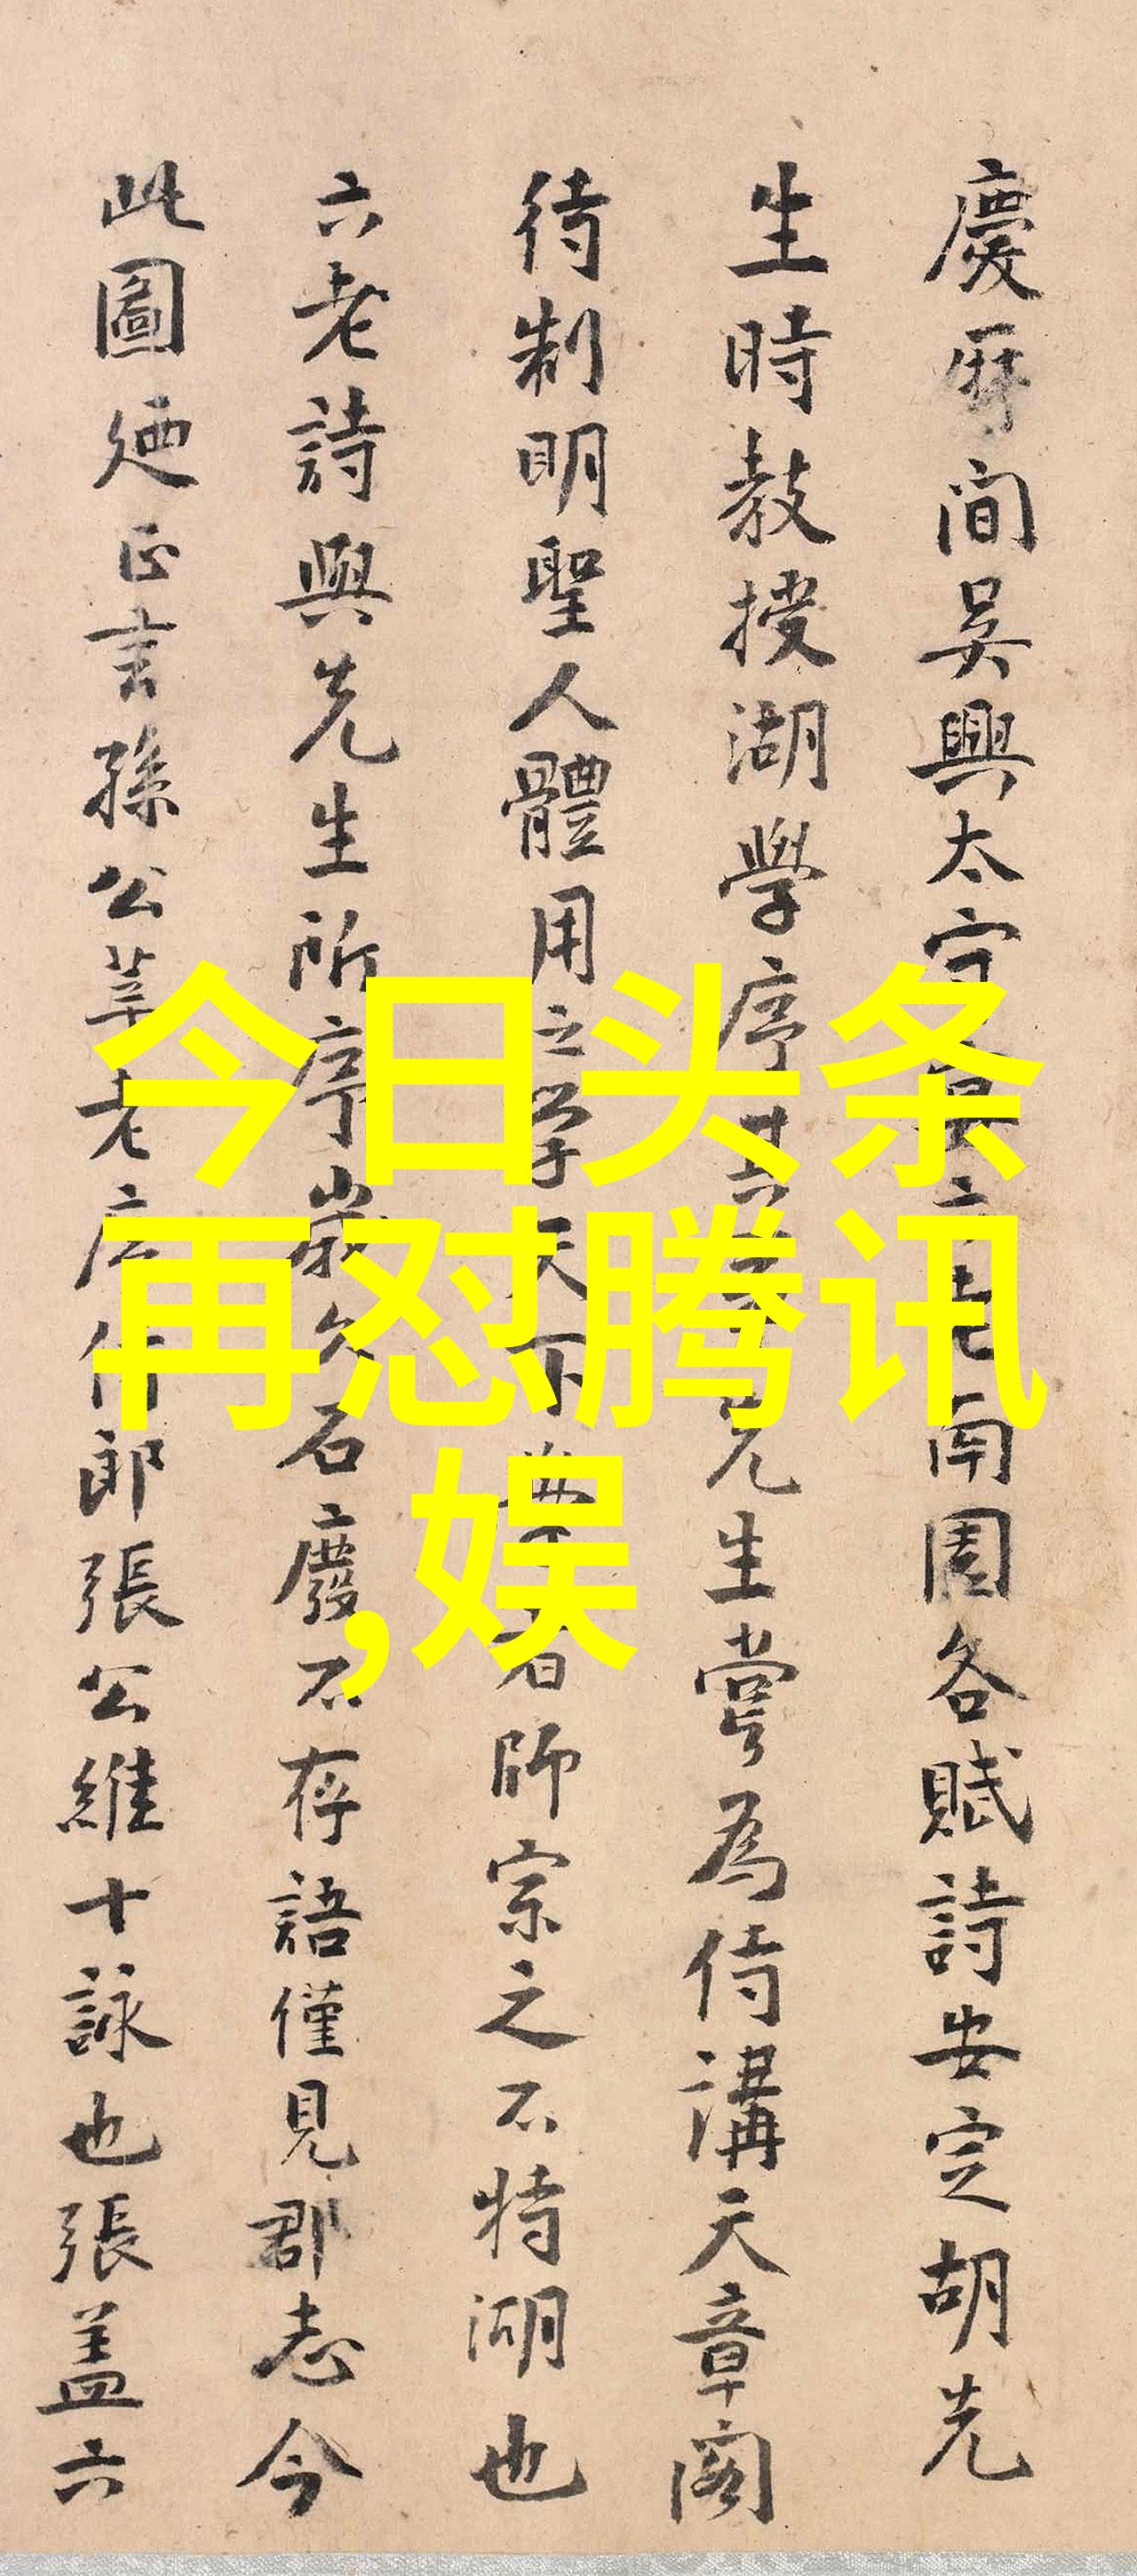 慶曆間吴興太守
六老南園各賦詩安定胡先
生時教授湖學序其
先生嘗為侍講天章閣
待制明聖人體用之學天下
者師宗之不特湖也
六老詩與先生所序歲久石廢不存語僅見郡志今
此圖廼正言孫公莘老
郎張公維十詠也張蓋六
今日头条
再怼腾讯
,娱